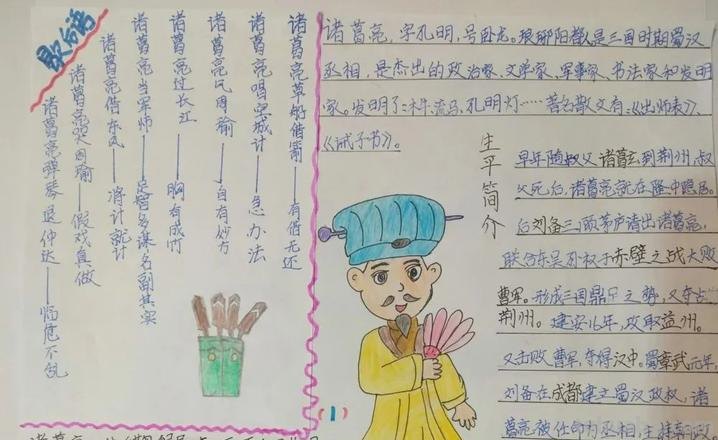 歇后语
诸葛亮草船借箭——有借无还
诸葛亮唱空城计——急办法
诸葛亮气周瑜——自有妙方
诸葛亮过长江——胸有成竹
诸葛亮当军师——足智多谋名副其实
诸葛亮借东风——将计就计
诸葛亮哭周瑜——假戏真做
诸葛亮弹琴退仲达——临危不乱
诸葛亮,字孔明,号卧龙。琅琊阳都是三国时期蜀汉
丞相,是杰出的政治家、文学家、军事家、书法家和发明
家。发明了:木牛流马、孔明灯……著名散文有:《出师表》、
《诫子书》。
生平简介
早年随叔父诸葛玄到荆州,叔
父死后,诸葛亮就在隆中隐居。
后刘备三顾茅庐请出诸葛亮,
联合东吴孙权于赤壁之战大败
曹军。形成三国鼎足之势,又夺占
荆州。建安16年,攻取益州。
又击败曹军,夺得汉中。蜀章武元年,
刘备在成都建立蜀汉政权,诸
葛亮被任命为丞相,主持朝政
(1)
诸葛亮